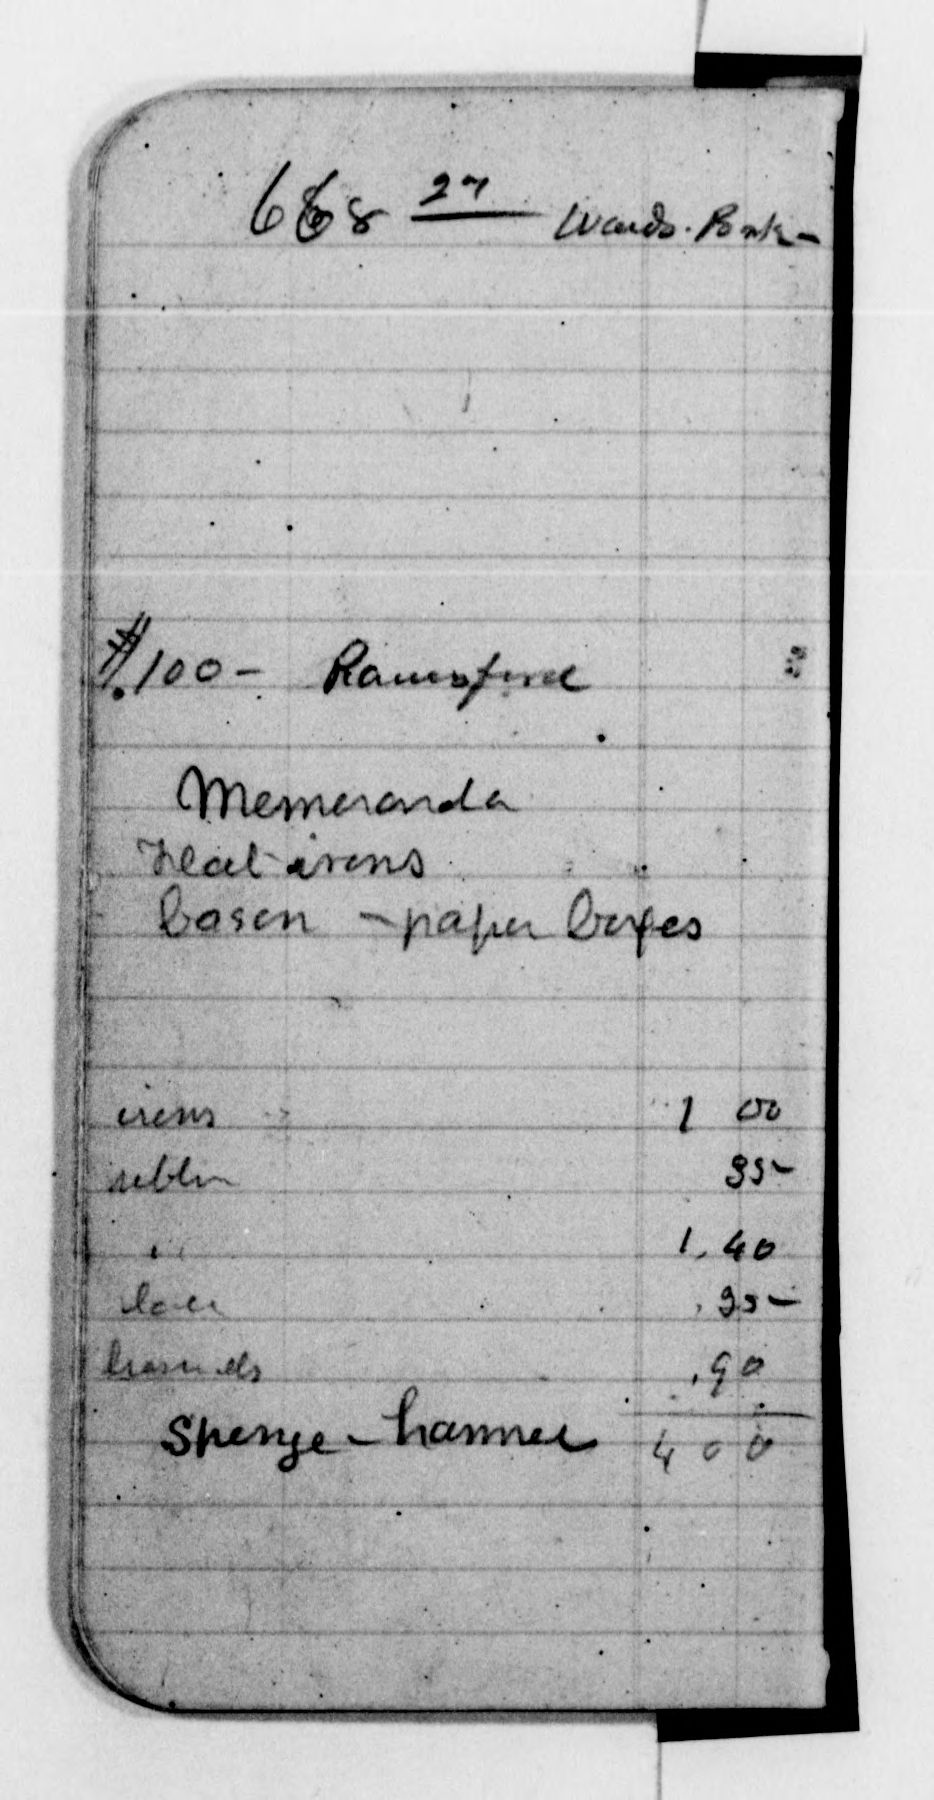 668 27 Wards. Bank -
$100 - Rainsford
Memoranda
Flat irons
basen - paper boxes
irons 1 00
35-
" 1.40
lace .35-
.90
Sponge - hammer 4 00